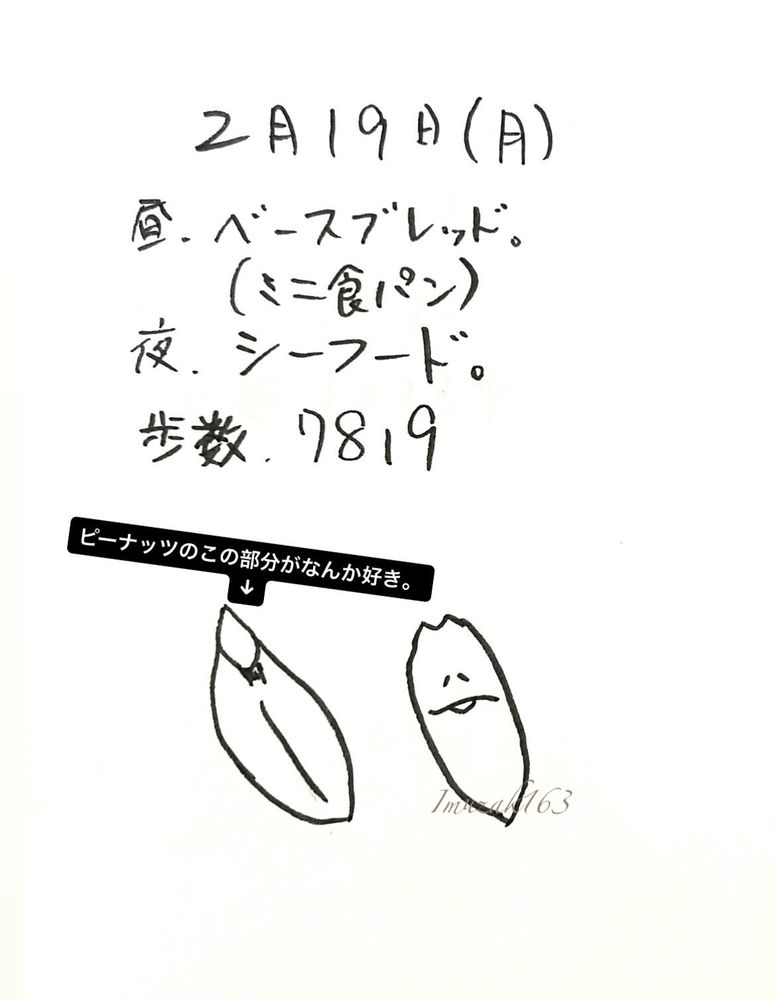 2月19日(月)
昼.ベースブレッド。
(ミニ食パン)
夜.シーフード。
歩数.7819
ピーナッツのこの部分がなんか好き。
↓
Imuzak163